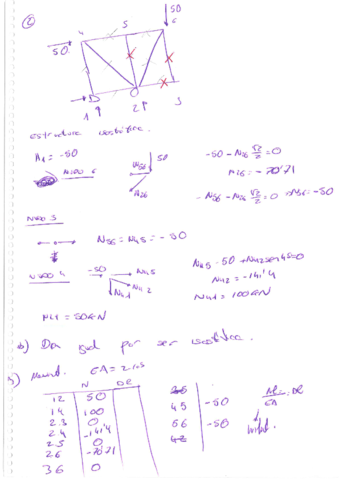 2
50
4 5 6
50
1 2 3
estructura isostática.
H1 = -50
NUDO 6
N56 50
N26
-50 - N26 √2/2 = 0
N26 = -70'71
-N56 - N26 √2/2 = 0 N56 = -50
NUDO 5
N56 = N45 = -50
NUDO 4
-50 N45
N41 N42
N45 - 50 + N42 sen 45 = 0
N42 = -141'4
N41 = 100 kN
= 50 kN
b) Da igual por ser isostática.
EA = 2.10.5
N
12 50
14 100
2.3 0
2.4 -141'4
2.5 0
26 -70'71
36 0
45 -50
56 -50
EA